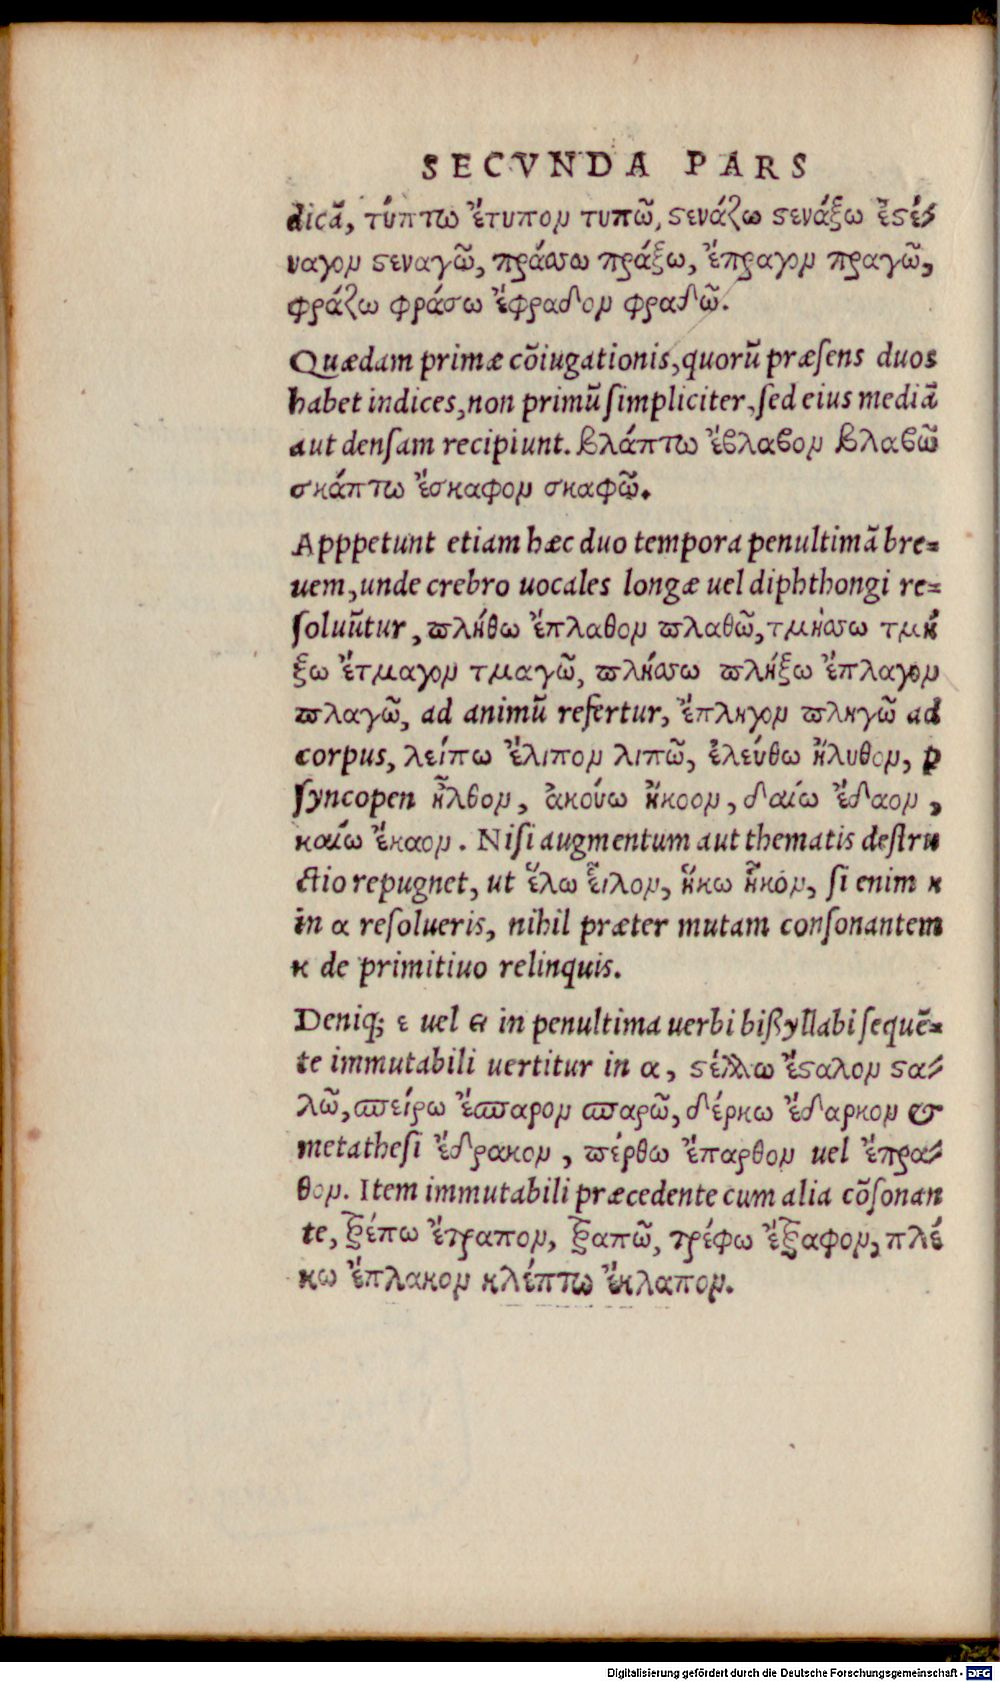 SECVNDA PARS
dicā, τύπτω ἔτυπον τυπῶ, ϛενάζω ϛενάξω ἐϛέ-
ναγον ϛεναγῶ, πράσσω πράξω, ἔπραγον πραγῶ,
φράζω φράσω ἔφραδον φραδῶ.
Quædam primæ cōiugationis, quorū præſens duos
habet indices, non primū ſimpliciter, ſed eius mediā
aut denſam recipiunt. βλάπτω ἔβλαβον βλαβῶ
σκάπτω ἔσκαφον σκαφῶ.
Apppetunt etiam hæc duo tempora penultimā bre=
uem, unde crebro uocales longæ uel diphthongi re=
ſoluūtur, πλήθω ἔπλαθον πλαθῶ, τμήσσω τμή
ξω ἔτμαγον τμαγῶ, πλήσσω πλήξω ἔπλαγον
πλαγῶ, ad animū refertur, ἔπληγον πληγῶ ad
corpus, λείπω ἔλιπον λιπῶ, ἐλεύθω ἤλυθον, ꝑ
ſyncopen ἦλθον, ἀκούω ἤκοον, δαίω ἔδαον,
καίω ἔκαον. Niſi augmentum aut thematis deſtru
ctio repugnet, ut ἕλω εἷλον, ἥκω ἧκον, ſi enim η
in α reſolueris, nihil præter mutam conſonantem
κ de primitiuo relinquis.
Deniq; ε uel ει in penultima uerbi bißyllabi ſequē=
te immutabili uertitur in α, ϛέλλω ἔϛαλον ϛα-
λῶ, σπείρω ἔσπαρον σπαρῶ, δέρκω ἔδαρκον &
metatheſi ἔδρακον, πέρθω ἔπαρθον uel ἔπρα-
θον. Item immutabili præcedente cum alia cōſonan
te, τρέπω ἔτραπον, τραπῶ, τρέφω ἔτραφον, πλέ
κω ἔπλακον κλέπτω ἔκλαπον.
Digitalisierung gefördert durch die Deutsche Forschungsgemeinschaft - DFG